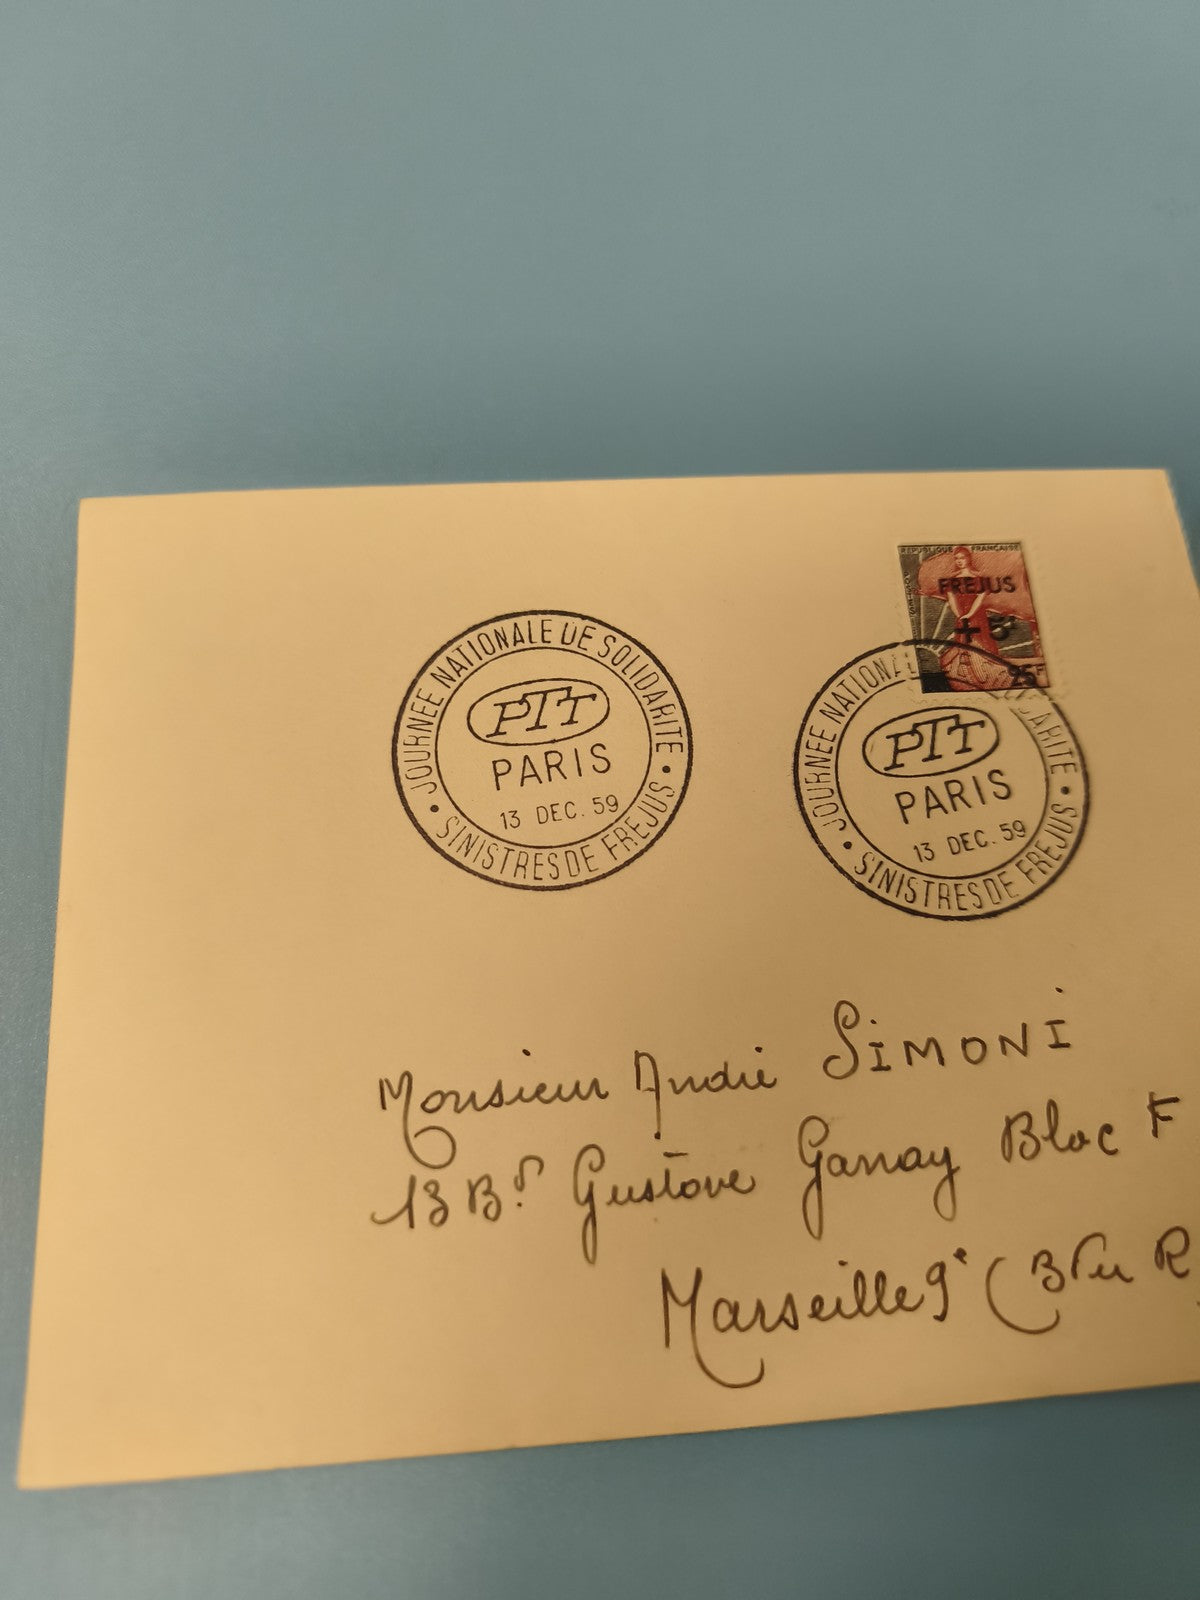 REPUBLIQUE FRANÇAISE
FREJUS
+ 5F
25F
JOURNEE NATIONALE DE SOLIDARITE
PTT
PARIS
13 DEC. 59
SINISTRES DE FREJUS
JOURNEE NATIONALE DE SOLIDARITE
PTT
PARIS
13 DEC. 59
SINISTRES DE FREJUS
Monsieur André SIMONI
13 Bd Gustave Ganay Bloc F
Marseille 9e (B du R